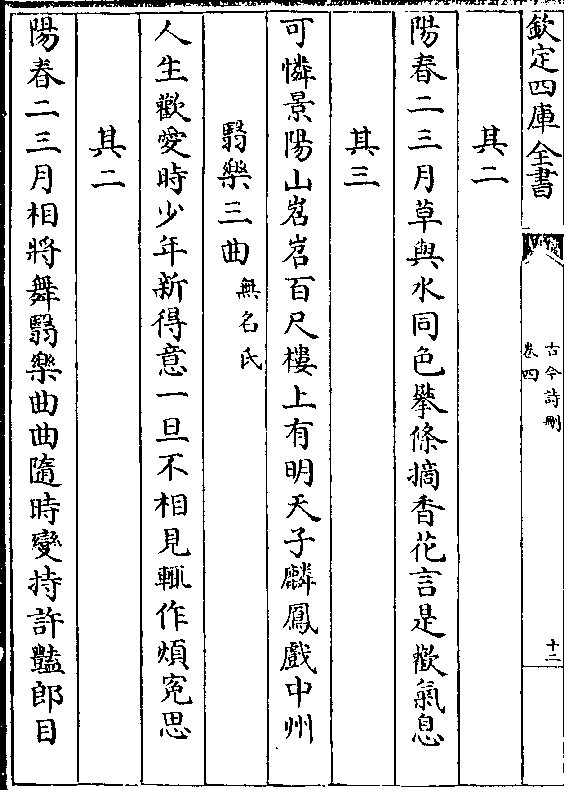 欽定四庫全書
古今詩刪
卷四
十二
其二
陽春二三月草與水同色攀條摘香花言是歡氣息
其三
可憐景陽山岧岧百尺樓上有明天子麟鳳戲中州
翳樂三曲無名氏
人生歡愛時少年新得意一旦不相見輒作煩寃思
其二
陽春二三月相將舞翳樂曲曲隨時變持許豔郎目